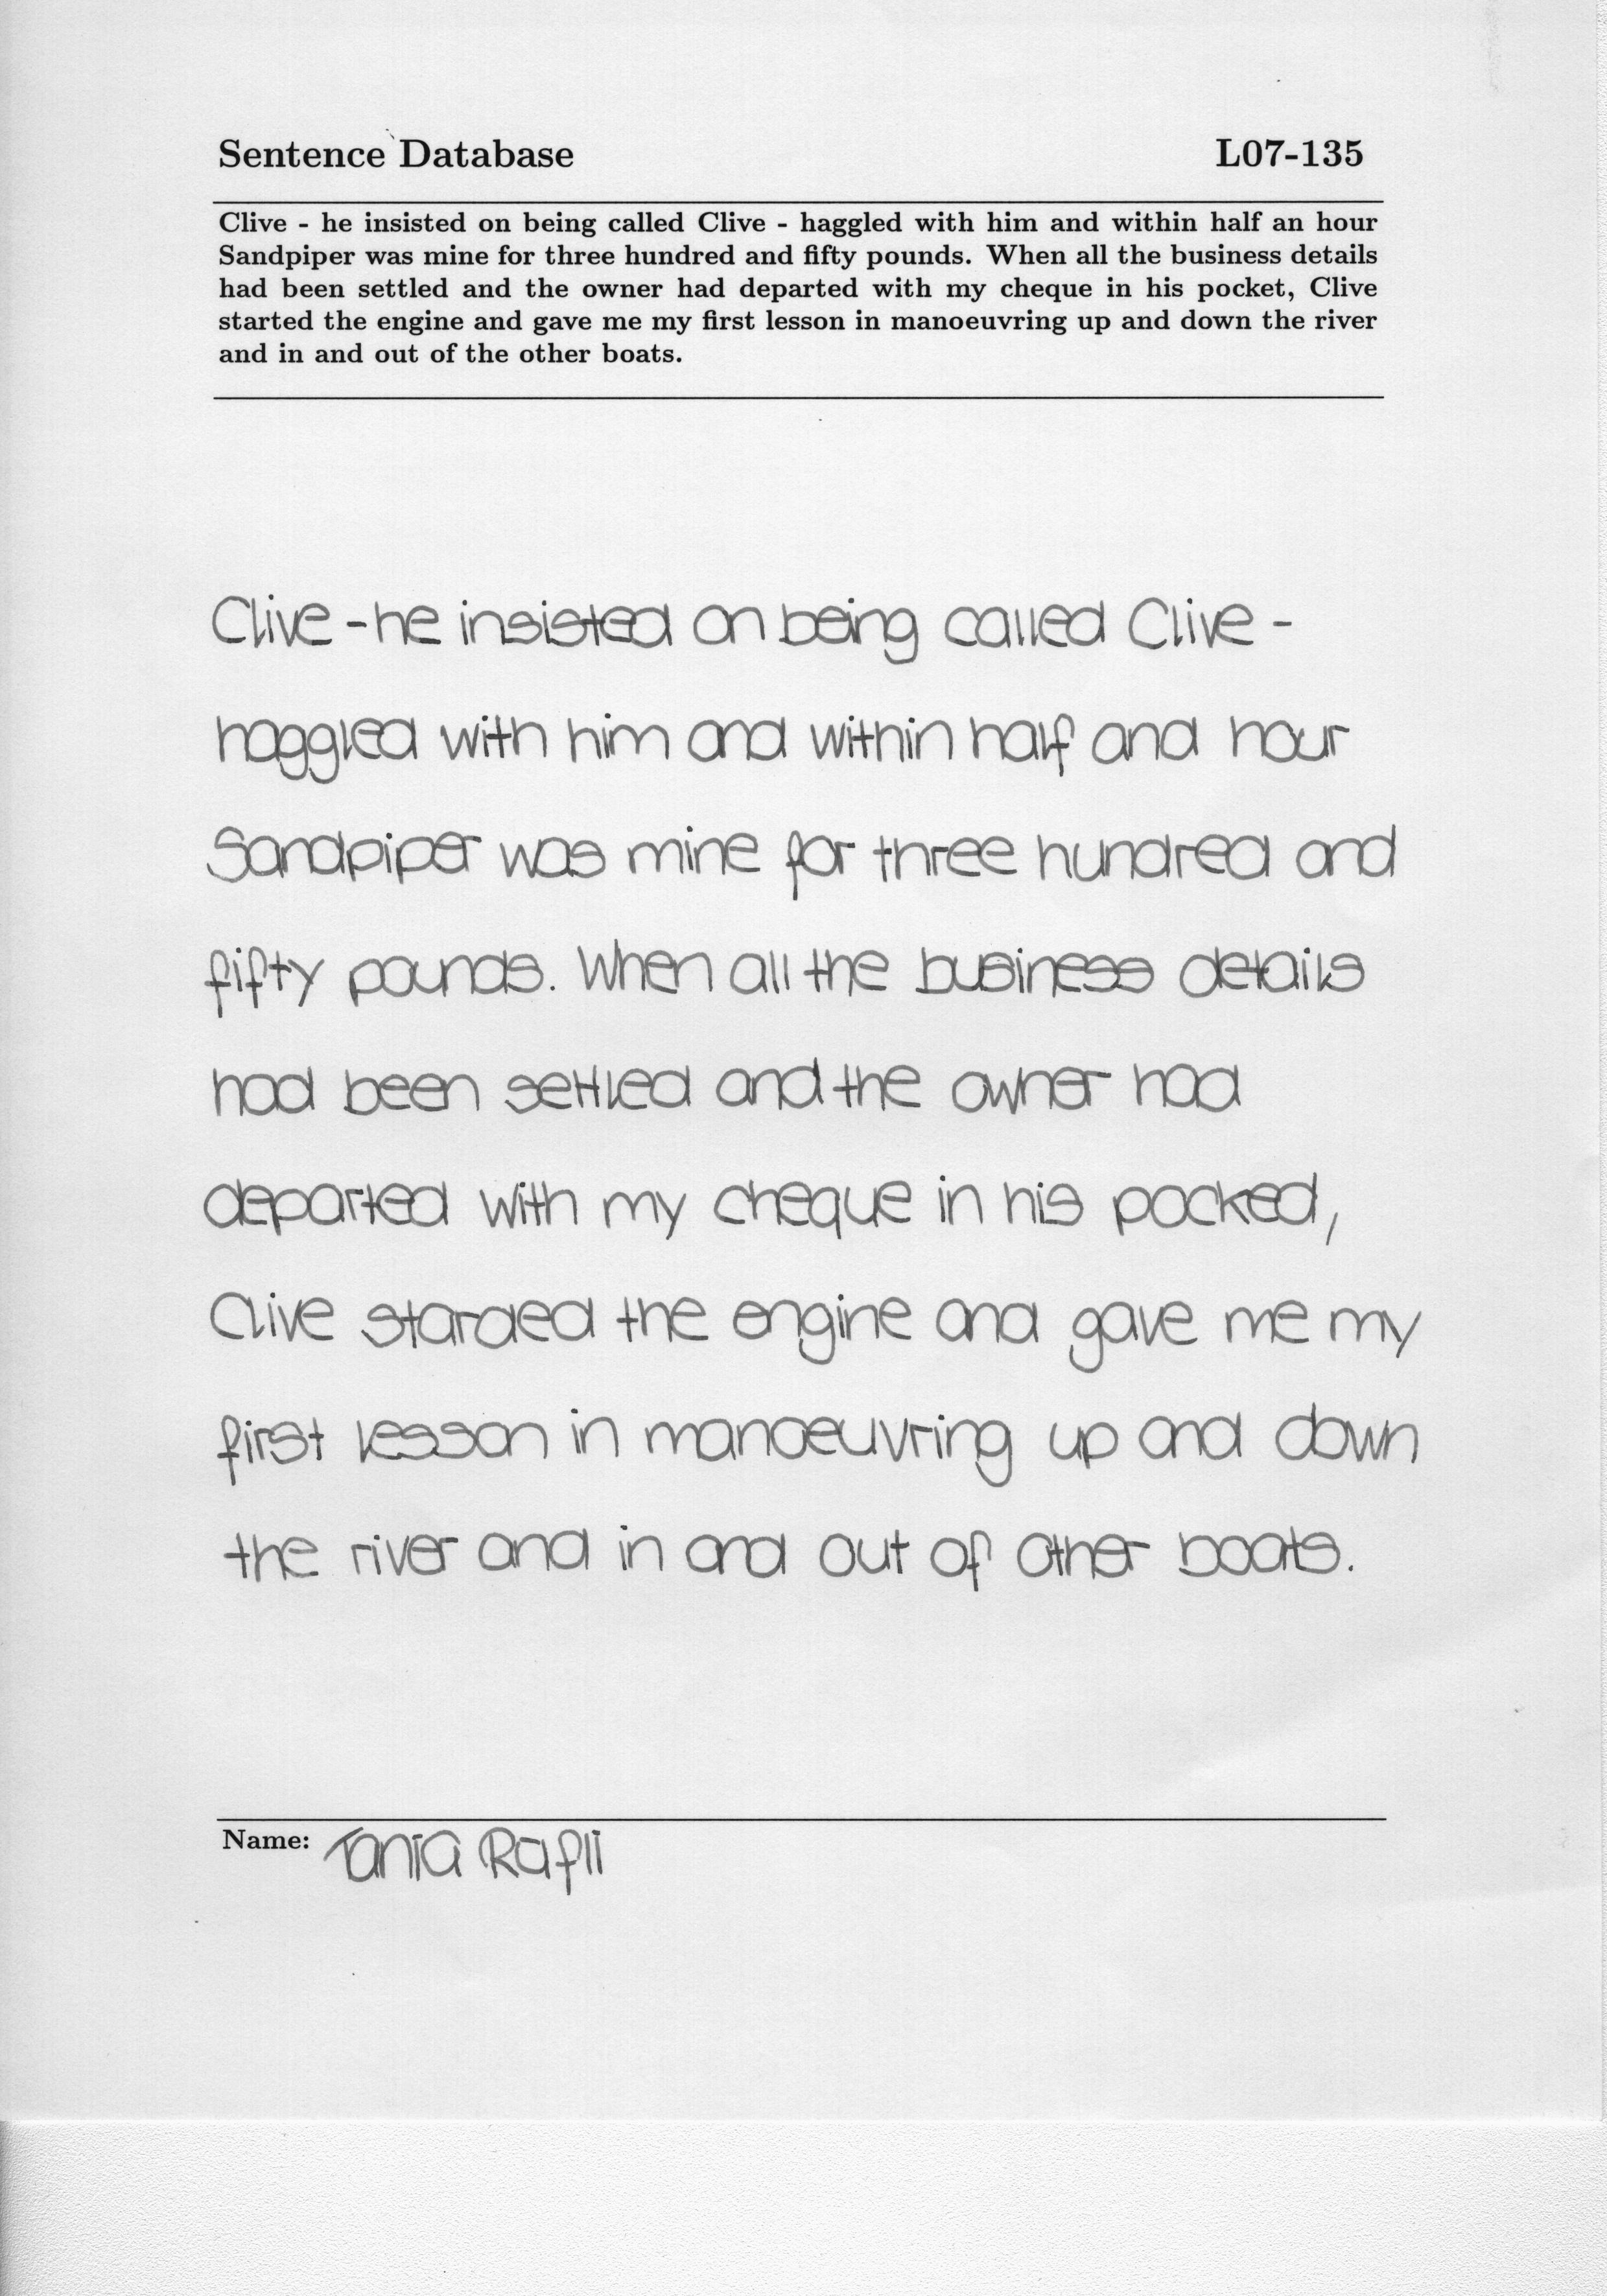 Sentence Database L07-135
Clive - he insisted on being called Clive - haggled with him and within half an hour
Sandpiper was mine for three hundred and fifty pounds. When all the business details
had been settled and the owner had departed with my cheque in his pocket, Clive
started the engine and gave me my first lesson in manoeuvring up and down the river
and in and out of the other boats.
Clive - he insisted on being called Clive -
haggled with him and within half and hour
Sandpiper was mine for three hundred and
fifty pounds. When all the business details
had been settled and the owner had
departed with my cheque in his pocked,
Clive starded the engine and gave me my
first lesson in manoeuvring up and down
the river and in and out of other boats.
Name: Tania Rafli